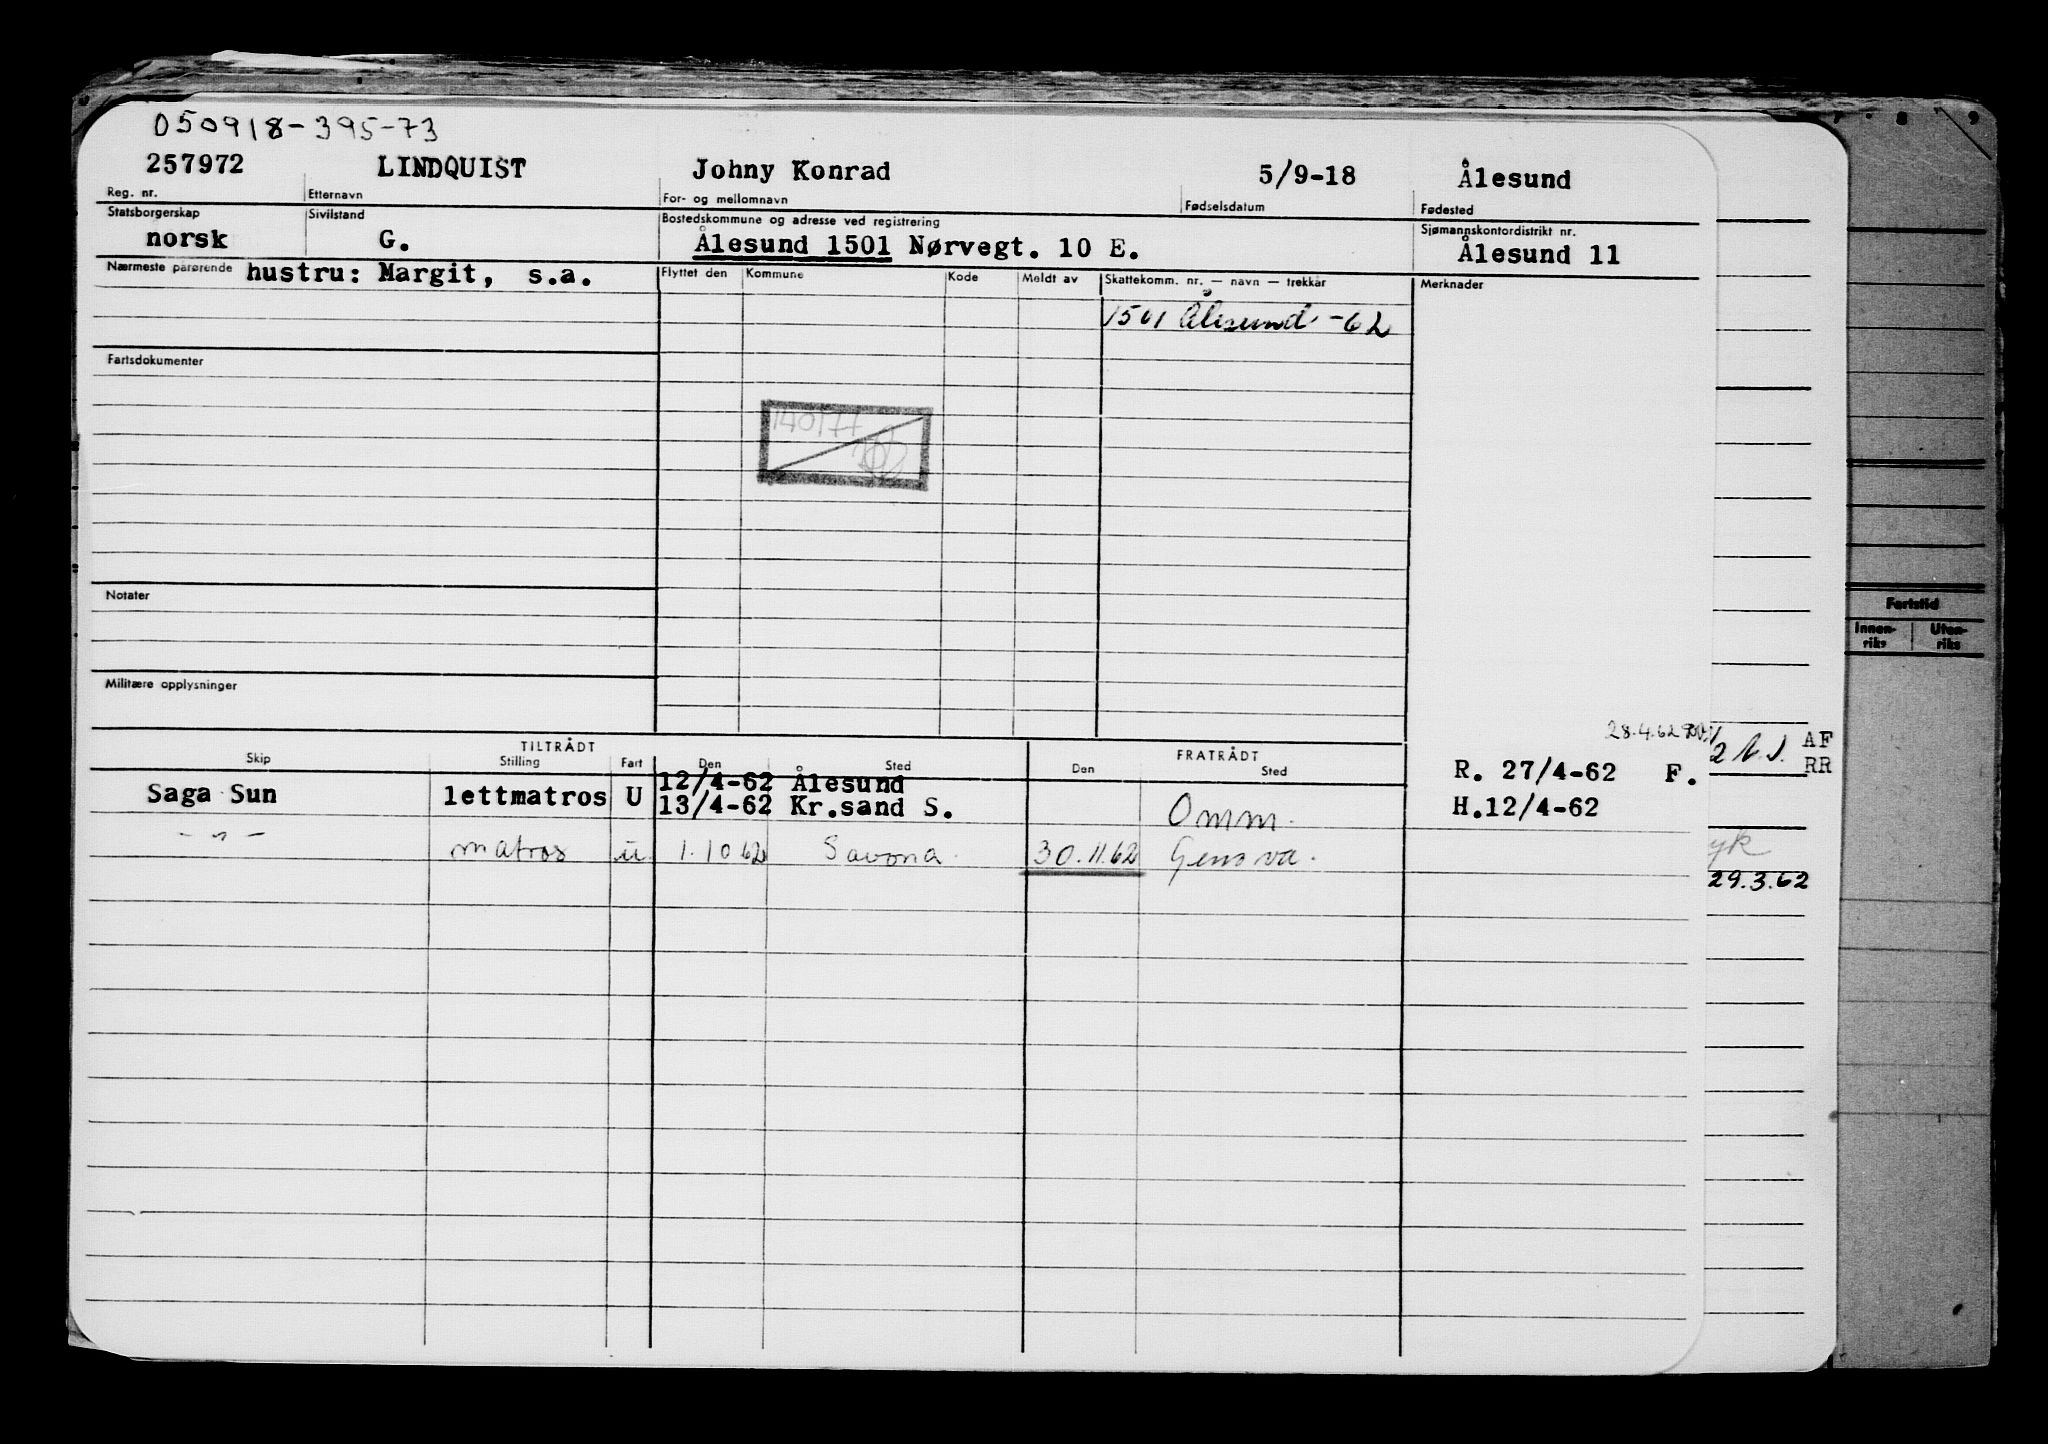 050918-395-73
257972 LINDQUIST Johny Konrad 5/9-18 Ålesund
Reg. nr. Etternavn For- og mellomnavn Fødselsdatum Fødested
Statsborgerskap Sivilstand Bostedskommune og adresse ved registrering Sjømannskontordistrikt nr.
norsk G. Ålesund 1501 Nørvegt. 10 E. Ålesund 11
Nærmeste pårørende hustru: Margit, s.a. Flyttet den Kommune Kode Meldt av Skattekomm. nr. — navn — trekkår Merknader
1501 Ålesund -62
Fartsdokumenter
140177
Notater
Fartstid
Innen-riks Uten-riks
Militære opplysninger
28.4.62
TILTRÅDT FRATRÅDT AF
Skip Stilling Fart Den Sted Den Sted RR
R. 27/4-62 F.
Saga Sun lettmatros U 12/4-62 Ålesund
13/4-62 Kr.sand S. Omm. H.12/4-62
- " - matros u 1.10 62 Savona. 30.11.62 Genova.
29.3.62